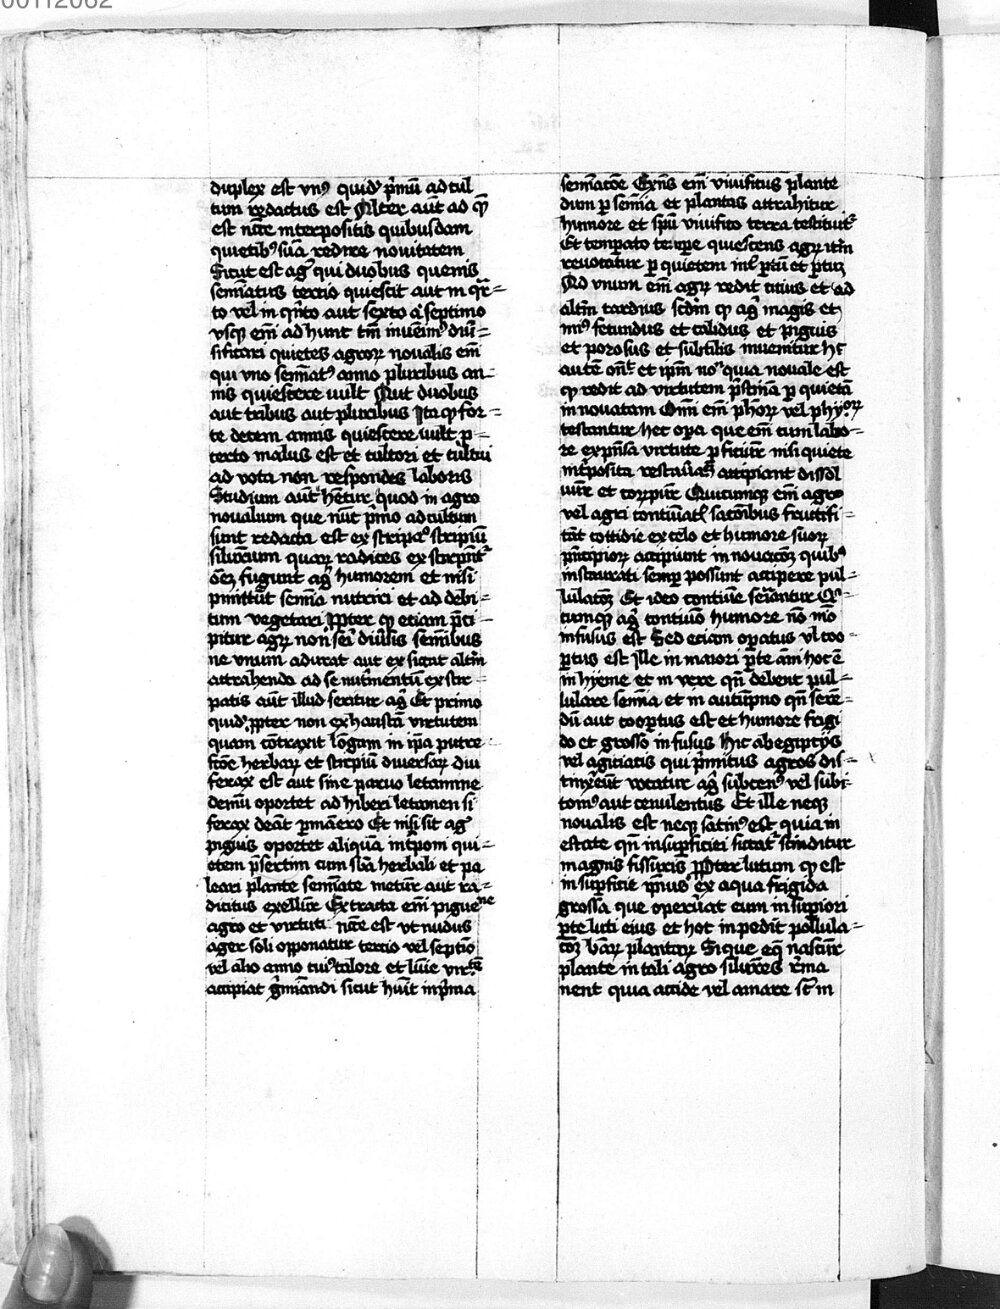 00112062
duplex est vnꝰ quidē p̄mū ad cul
tum redactus est Alter aūt ad qꝫ
est nūc interpositis quibusdam
quietibꝰ suā redire nouitatem
Sicut est agͥ qui duobus quemis
seminatus tertio quiescit aut in qͣr=
to vel in qͥnto aut sexto a septimo
vsqꝫ em̄ ad hunc tm̄ inuenimꝰ diu=
sificari quietes agroꝝ noualis em̄
qui vno semīatꝰ anno pluribus an=
nis quiescere uult Aut duobus
aut tribus aut pluribus Ita qꝫ for=
te decem annis quiescere uult p=
terto malus est et cultori et cultui
ad vota non respondes laboris
Studium aūt hētur quod in agro
noualium que nūc p̄mo ad cultum
sunt redacta est ex stripacͦ stirpiū
siluarum quaꝝ radices ex stirpēt
oēs fugunt agͥ humorem et nisi
pmittūt semīa nutriri et ad debi=
tum vegetari Ꝓpter qꝫ etiam pͥci=
pitur agꝝ non sei diuīis semībus
ne vnum adurat aut exsiccat altm̄
attrahendo ad se nutmentū exstir=
patis aūt illud seritur agͥ Et primo
quidē ꝓpter non exhaustā virtutem
quam cōtraxit lōgam in ip̄a putre=
fcōe herbaꝝ et stirpiū diuersaꝝ diu
ferax est aut sine paruo letamine
demū oportet adhiberi letamen si
ferax deāt ꝑmāero Et nisi sit agͥ
piguis oportet aliquā int̄pom qui=
etem p̄sertim cum sbā herbali et pa
leari plante semīate metūr aut ra=
dicitus exellūr Extracta em̄ piguene
agro et virtuti nūc est vt nudus
ager soli opponatur tertio vel septīo
vel alio anno cuiꝰ calore et lūie virtē
accipiat gͥmiandi sicut huit in p̄ma
semīacōe Exn̄s em̄ viuificus plante
dum ꝑ semīa et plantas attrahitur
humore et spū viuifico terra testitutͬ
Et temperato tempe quiescens agꝝ itm̄
reuocatur ꝑ quietem inl ptū et ptuꝫ
Ad vnum em̄ agꝝ redit citius et ad
altm̄ tardius scdm̄ qꝫ agͥ magis et
mīꝰ fecundus et calidus et piguis
et porosus et subtilis inuenitur hͨ
autē om̄e et ipm̄ noͫ quia nouale est
qꝫ redit ad virtutem p̄stinā ꝑ quietā
innouatam Omī em̄ phorꝝ vel phyͦrꝝ
testantur hec opa que em̄ cum labo=
re expn̄sa virtute pficiūtr nisi quiete
int̄posita restauratͥ accipiant dissol
uūtr et corrpūr Quicumqꝫ em̄ agro
vel agri contiuatͥ sacōibus fructifi=
cāt cottidie ex celo et humore suorꝝ
pn̄cipiorꝝ accipiunt innouacōꝫ quibꝰ
instaurati sempꝫ possunt accipere pul=
lulacōꝫ Et ideo contiūe seīantur Qͥ=
cumqꝫ agͥ contiuo humore nō mō
infusus est Sed etiam opatus vl coo=
ptus est Ille in maiori pte ām hoc ē
in hyeme et in vere qn̄ debent pul=
lulare semīa et in autūpno qn̄ sere=
dū aut cooptus est et humore frigi
do et grosso infusus Hic ab egiptijs
vel agiciatis qui p̄mitus agros dis=
tinxeūt vocatur agͥ subcenꝰ vel subi=
tomꝰ aut cenulentus Et ille neqꝫ
noualis est neqꝫ satiuꝰ est quia in
estate qn̄ insupficiei siccatͬ scinditur
magnis fissuris Ꝓpter lutum qꝫ est
in supficie ipīus ex aqua frigida
grossa que operuat eum in supiori
pte luti eius et hoc inpedit pollula=
coꝫ baꝝ plantaꝝ Sique eqꝫ nascūtr
plante in tali agro siluares rema
nent quia acide vel amare sūt in